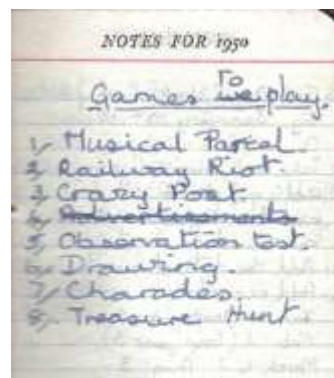 NOTES FOR 1950
To
Games we play.
1, Musical Parcel.
2, Railway Riot.
3, Crazy Post.
4, Advertisements
5, Observation test.
6, Drawing.
7, Charades.
8, Treasure Hunt.